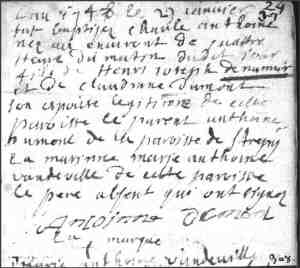 L'an 1748 le 29 janvier 29
fut baptisez Camille anthoine
nez au environt de quattre
heure du matin dudit jour
fils de Henri joseph de namur
et de claudinne dumont
son espouse legitime de cette
paroisse le parent anthoine
dumont de la paroisse de
La marinne marie anthoine
vandeville de cette paroisse
le pere absent qui ont signez
Antoinne Dumon
La marque
marie anthoine vandeville